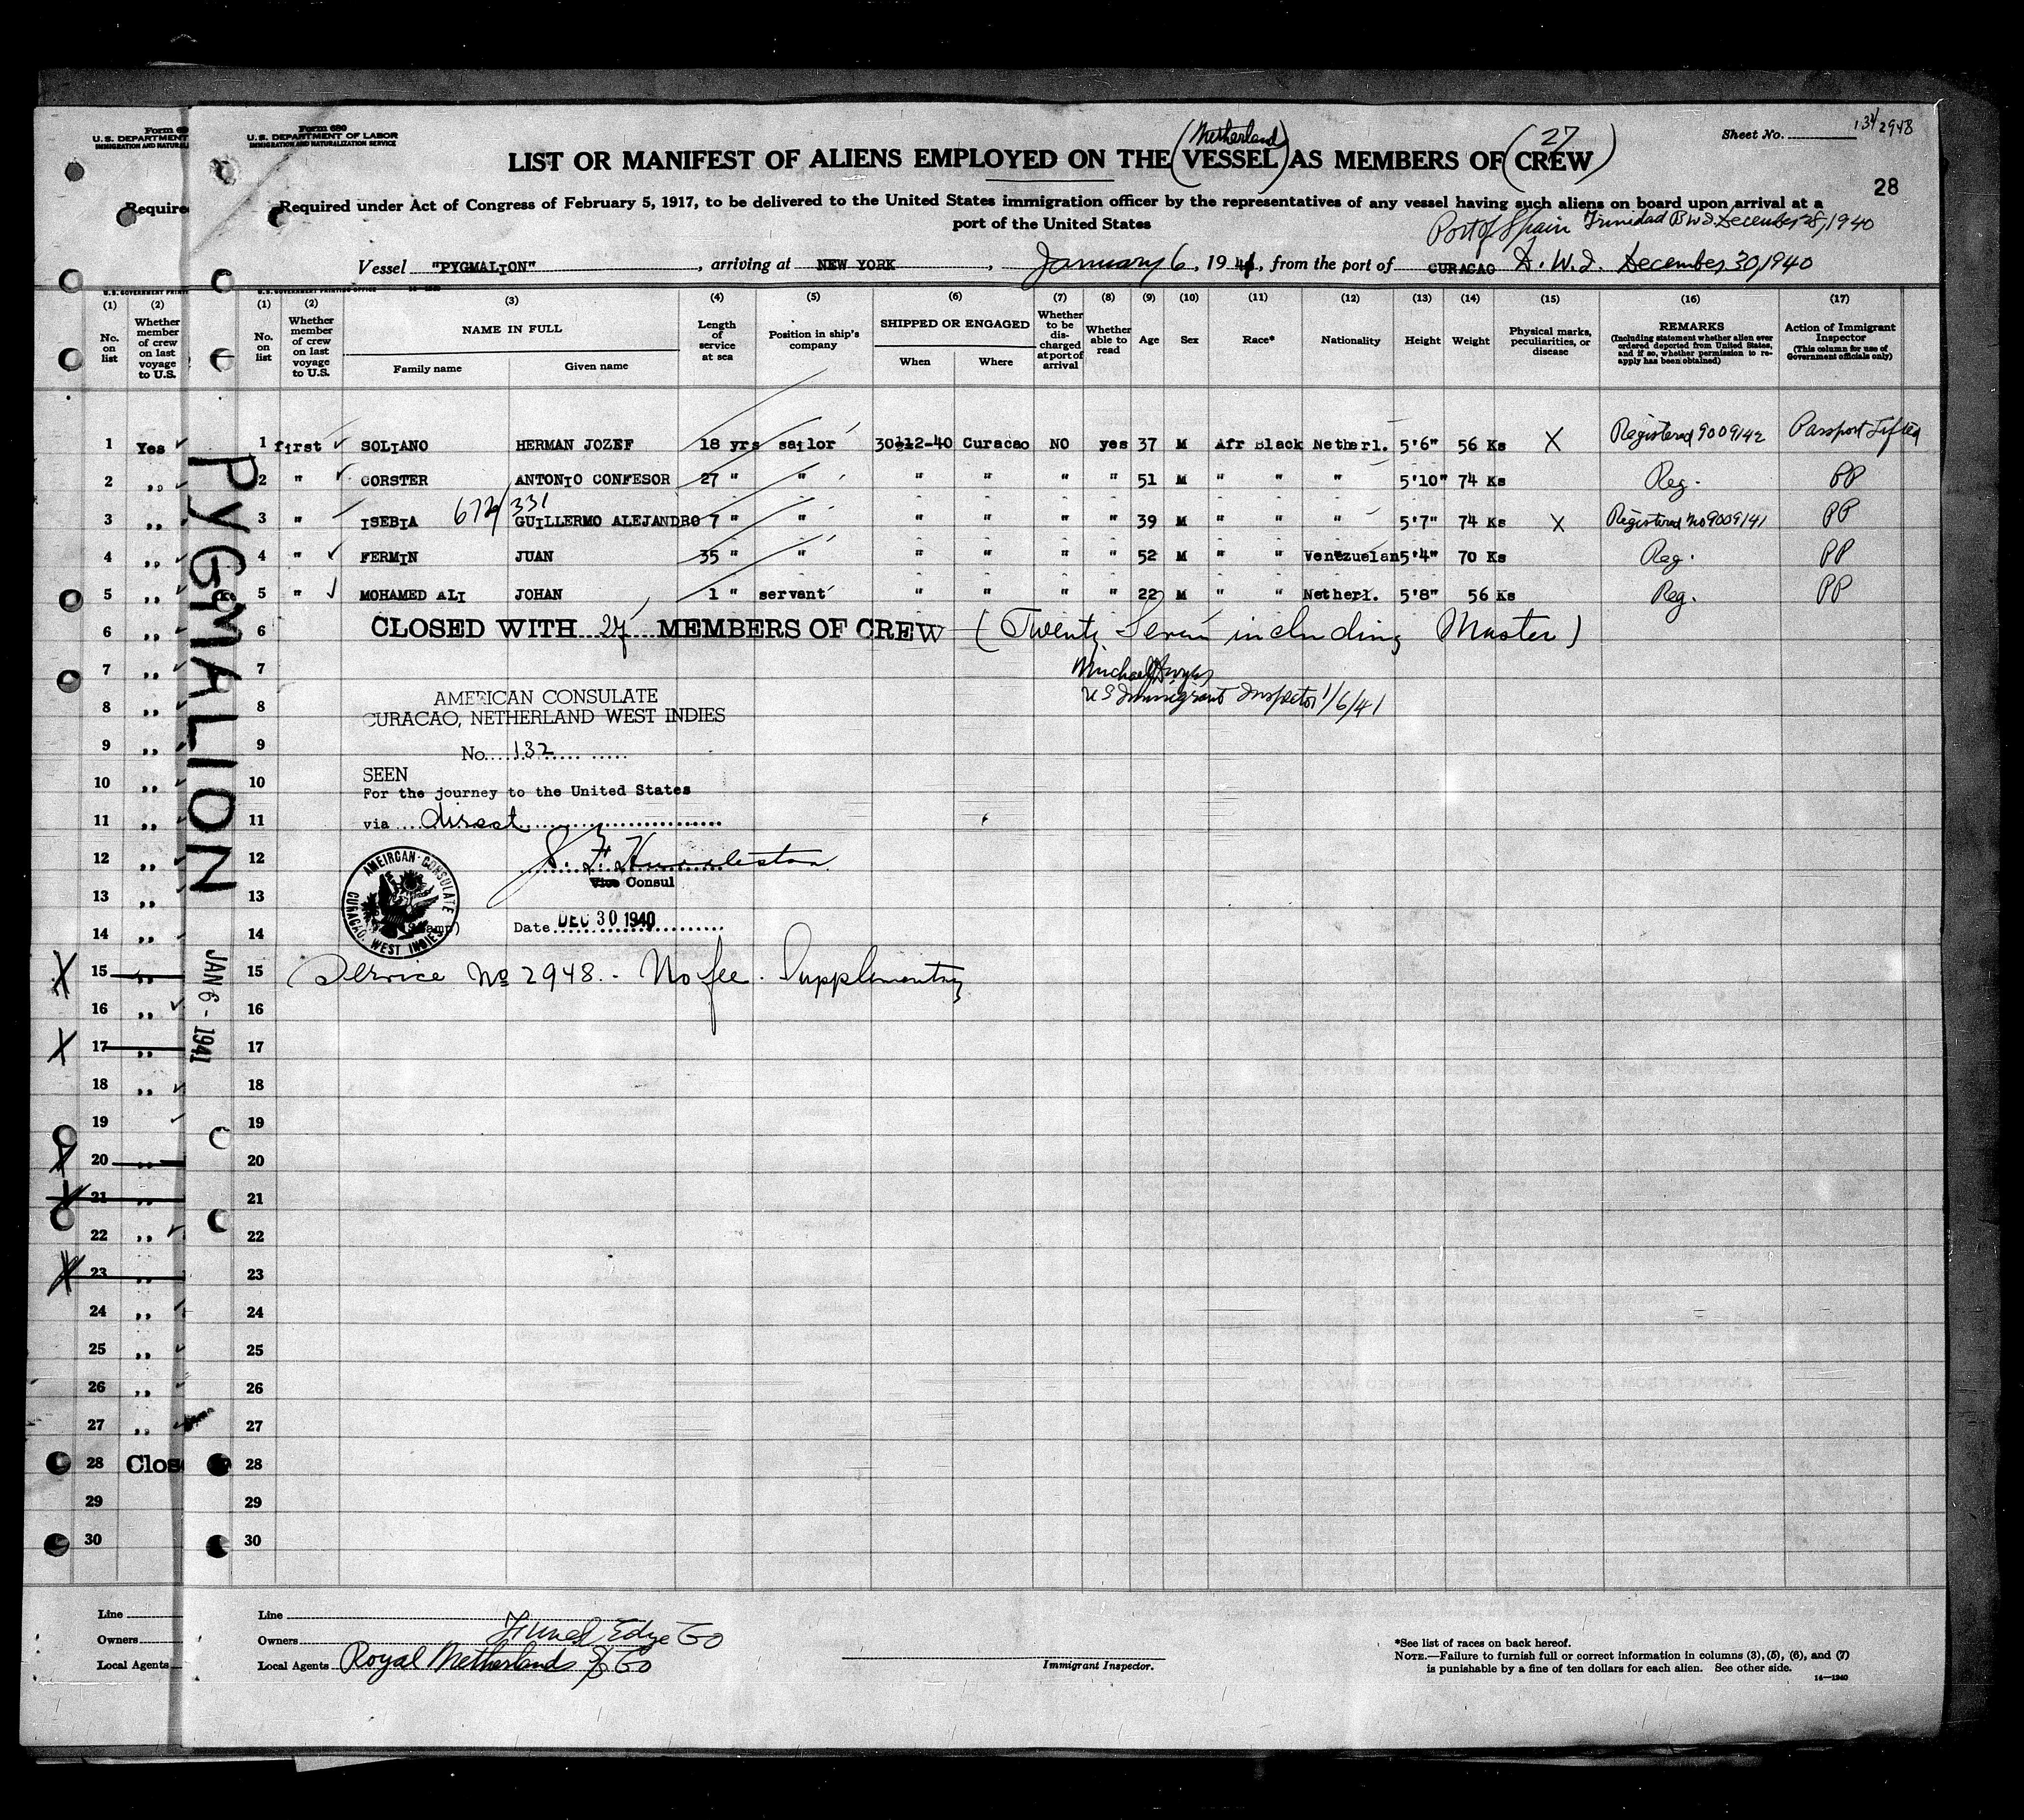 Form 680
U.S. DEPARTMENT OF LABOR
IMMIGRATION AND NATURALIZATION SERVICE
Sheet No. 134/2948
LIST OR MANIFEST OF ALIENS EMPLOYED ON THE (VESSEL) AS MEMBERS OF (CREW)
(Netherland) 27
28
Required under Act of Congress of February 5, 1917, to be delivered to the United States immigration officer by the representatives of any vessel having such aliens on board upon arrival at a
port of the United States
Port of Spain Trinidad BWI December 28, 1940
Vessel "PYGMALION", arriving at NEW YORK, January 6, 1941, from the port of CURACAO D.W.I. December 30, 1940
U.S. GOVERNMENT PRINTING OFFICE
(1) (2) (1) (2) (3) (4) (5) (6) (7) (8) (9) (10) (11) (12) (13) (14) (15) (16) (17)
No. on list
Whether member of crew on last voyage to U.S.
No. on list
Whether member of crew on last voyage to U.S.
NAME IN FULL
Family name Given name
Length of service at sea
Position in ship's company
SHIPPED OR ENGAGED
When Where
Whether to be discharged at port of arrival
Whether able to read
Age Sex Race* Nationality Height Weight
Physical marks, peculiarities, or disease
REMARKS
(Including statement whether alien ever ordered deported from United States, and if so, whether permission to reapply has been obtained)
Action of Immigrant Inspector
(This column for use of Government officials only)
1 Yes 1 first SOLIANO HERMAN JOZEF 18 yrs sailor 30-12-40 Curacao NO yes 37 M Afr Black Netherl. 5'6" 56 Ks X Registered 9009142 Passport Lifted
2 " 2 " CORSTER ANTONIO CONFESOR 27 " " " " " " 51 M " " " 5'10" 74 Ks Reg. PP
672/331
3 " 3 " ISEBIA GUILLERMO ALEJANDRO 7 " " " " " " 39 M " " " 5'7" 74 Ks X Registered No 9009141 PP
4 " 4 " FERMIN JUAN 35 " " " " " " 52 M " " Venezuelan 5'4" 70 Ks Reg. PP
5 " 5 " MOHAMED ALI JOHAN 1 " servant " " " " 22 M " " Netherl. 5'8" 56 Ks Reg. PP
6 " 6 CLOSED WITH 27 MEMBERS OF CREW (Twenty Seven including Master)
7 " 7 Michael
US Immigrant Inspector 1/6/41
8 " 8 AMERICAN CONSULATE
CURACAO, NETHERLAND WEST INDIES
9 " 9 No. 132
10 " 10 SEEN
For the journey to the United States
11 " 11 via direct
12 " 12
13 " 13 Vice Consul
AMEIRCAN CONSULATE
CURACAO, WEST INDIES
14 " 14 (Stamp) Date DEC 30 1940
15 " 15 Service No 2948. - No fee. Supplementary
16 " 16
17 " 17
18 " 18
19 19
20 " 20
21 " 21
22 " 22
23 " 23
24 " 24
25 " 25
26 " 26
27 " 27
28 Clos 28
29 29
30 30
PYGMALION
JAN 6 - 1941
Line
Owners
Local Agents
Line
Owners Edye Co
Local Agents Royal Netherlands S/S Co
Immigrant Inspector.
*See list of races on back hereof.
NOTE.—Failure to furnish full or correct information in columns (3), (5), (6), and (7)
is punishable by a fine of ten dollars for each alien. See other side.
14—1940